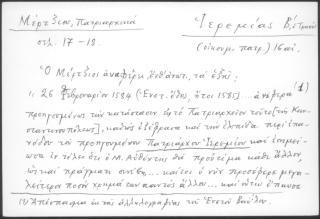 Μέρτζιου, Πατριαρχικά
σελ. 17-18.
Ἱερεμίας Β',
(οἰκουμ. πατρ.) 16 αἰ.
Ὁ Μέρτζιος ἀναφέρει, τὰ ἑξῆς:
" 26 Φεβρουαρίου 1584 (Ἐνετ. ἔτος, ἤτοι 1585)... ἀνέφερα (1)
προηγουμένως τὴν κατάστασιν Πατριαρχείου τούτου [τῆς Κων-
σταντινουπόλεως], καθὼς καὶ τὴν ἐλπίδα περὶ ἐπα-
νόδου τοῦ προηγουμένου Πατριάρχου Ἱερεμίου καὶ ἐσημεί-
ωσα ἐν τέλει ὅτι ὁ Μ. Αὐθέντης θὰ προετίμα κάθε ἄλλον,
ὡς καὶ πράγματι συνέβη... καίτοι ὁ νῦν προσέφερε μεγα-
λείτερα ποσὰ χρημάτων παντὸς ἄλλου... καὶ οὕτω ἔπαυσε
(1) Ἀπόσπασμα ἐκ τῆς ἀλληλογραφίας τοῦ Ἐνετοῦ Βαΐλου.